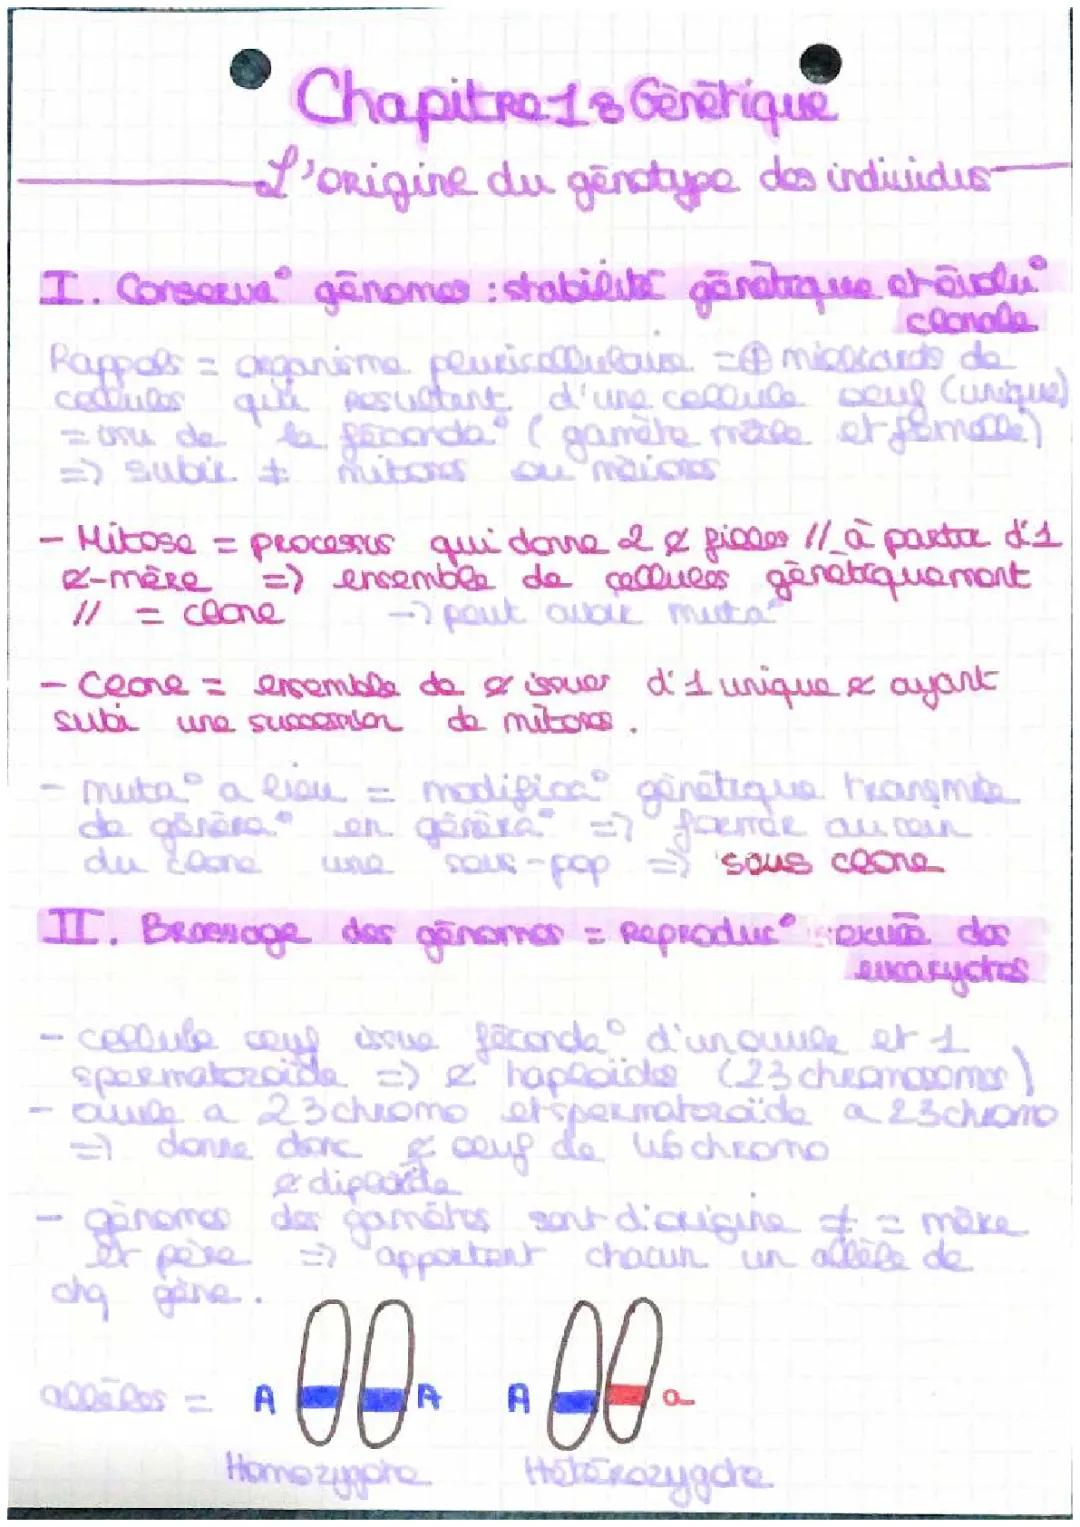 Chapitre 1 : Génétique
L'origine du génotype des individus
I. Conserva° génomes : stabilité génétique et évolu°
clonale
Rappels = organisme pluricellulaire = ⊕ milliards de
cellules qui résultent d'une cellule oeuf (unique)
= issu de la féconda° (gamète mâle et femelle)
=> subir ≠ mitoses ou méioses
- Mitose = processus qui donne 2 ¢ filles // à partir d'1
¢-mère => ensemble de cellules génétiquement
// = clone -> peut avoir muta°
- Clone = ensemble de ¢ issues d'1 unique ¢ ayant
subi une succession de mitoses.
- muta° a lieu = modifica° génétique transmise
de généra° en généra° => former au sein
du clone une sous-pop => sous clone
II. Brassage des génomes = Reproduc° sexuée des
eucaryotes
- cellule oeuf issue féconda° d'un ovule et 1
spermatozoïde => ¢ haploïdes (23 chromosomes)
- ovule a 23 chromo et spermatozoïde a 23 chromo
=> donne donc ¢ oeuf de 46 chromo
¢ diploïde
- génomes des gamètes sont d'origine ≠ = mère
et père => apportent chacun un allèle de
chq gène.
allèles = A A A a
Homozygote Hétérozygote